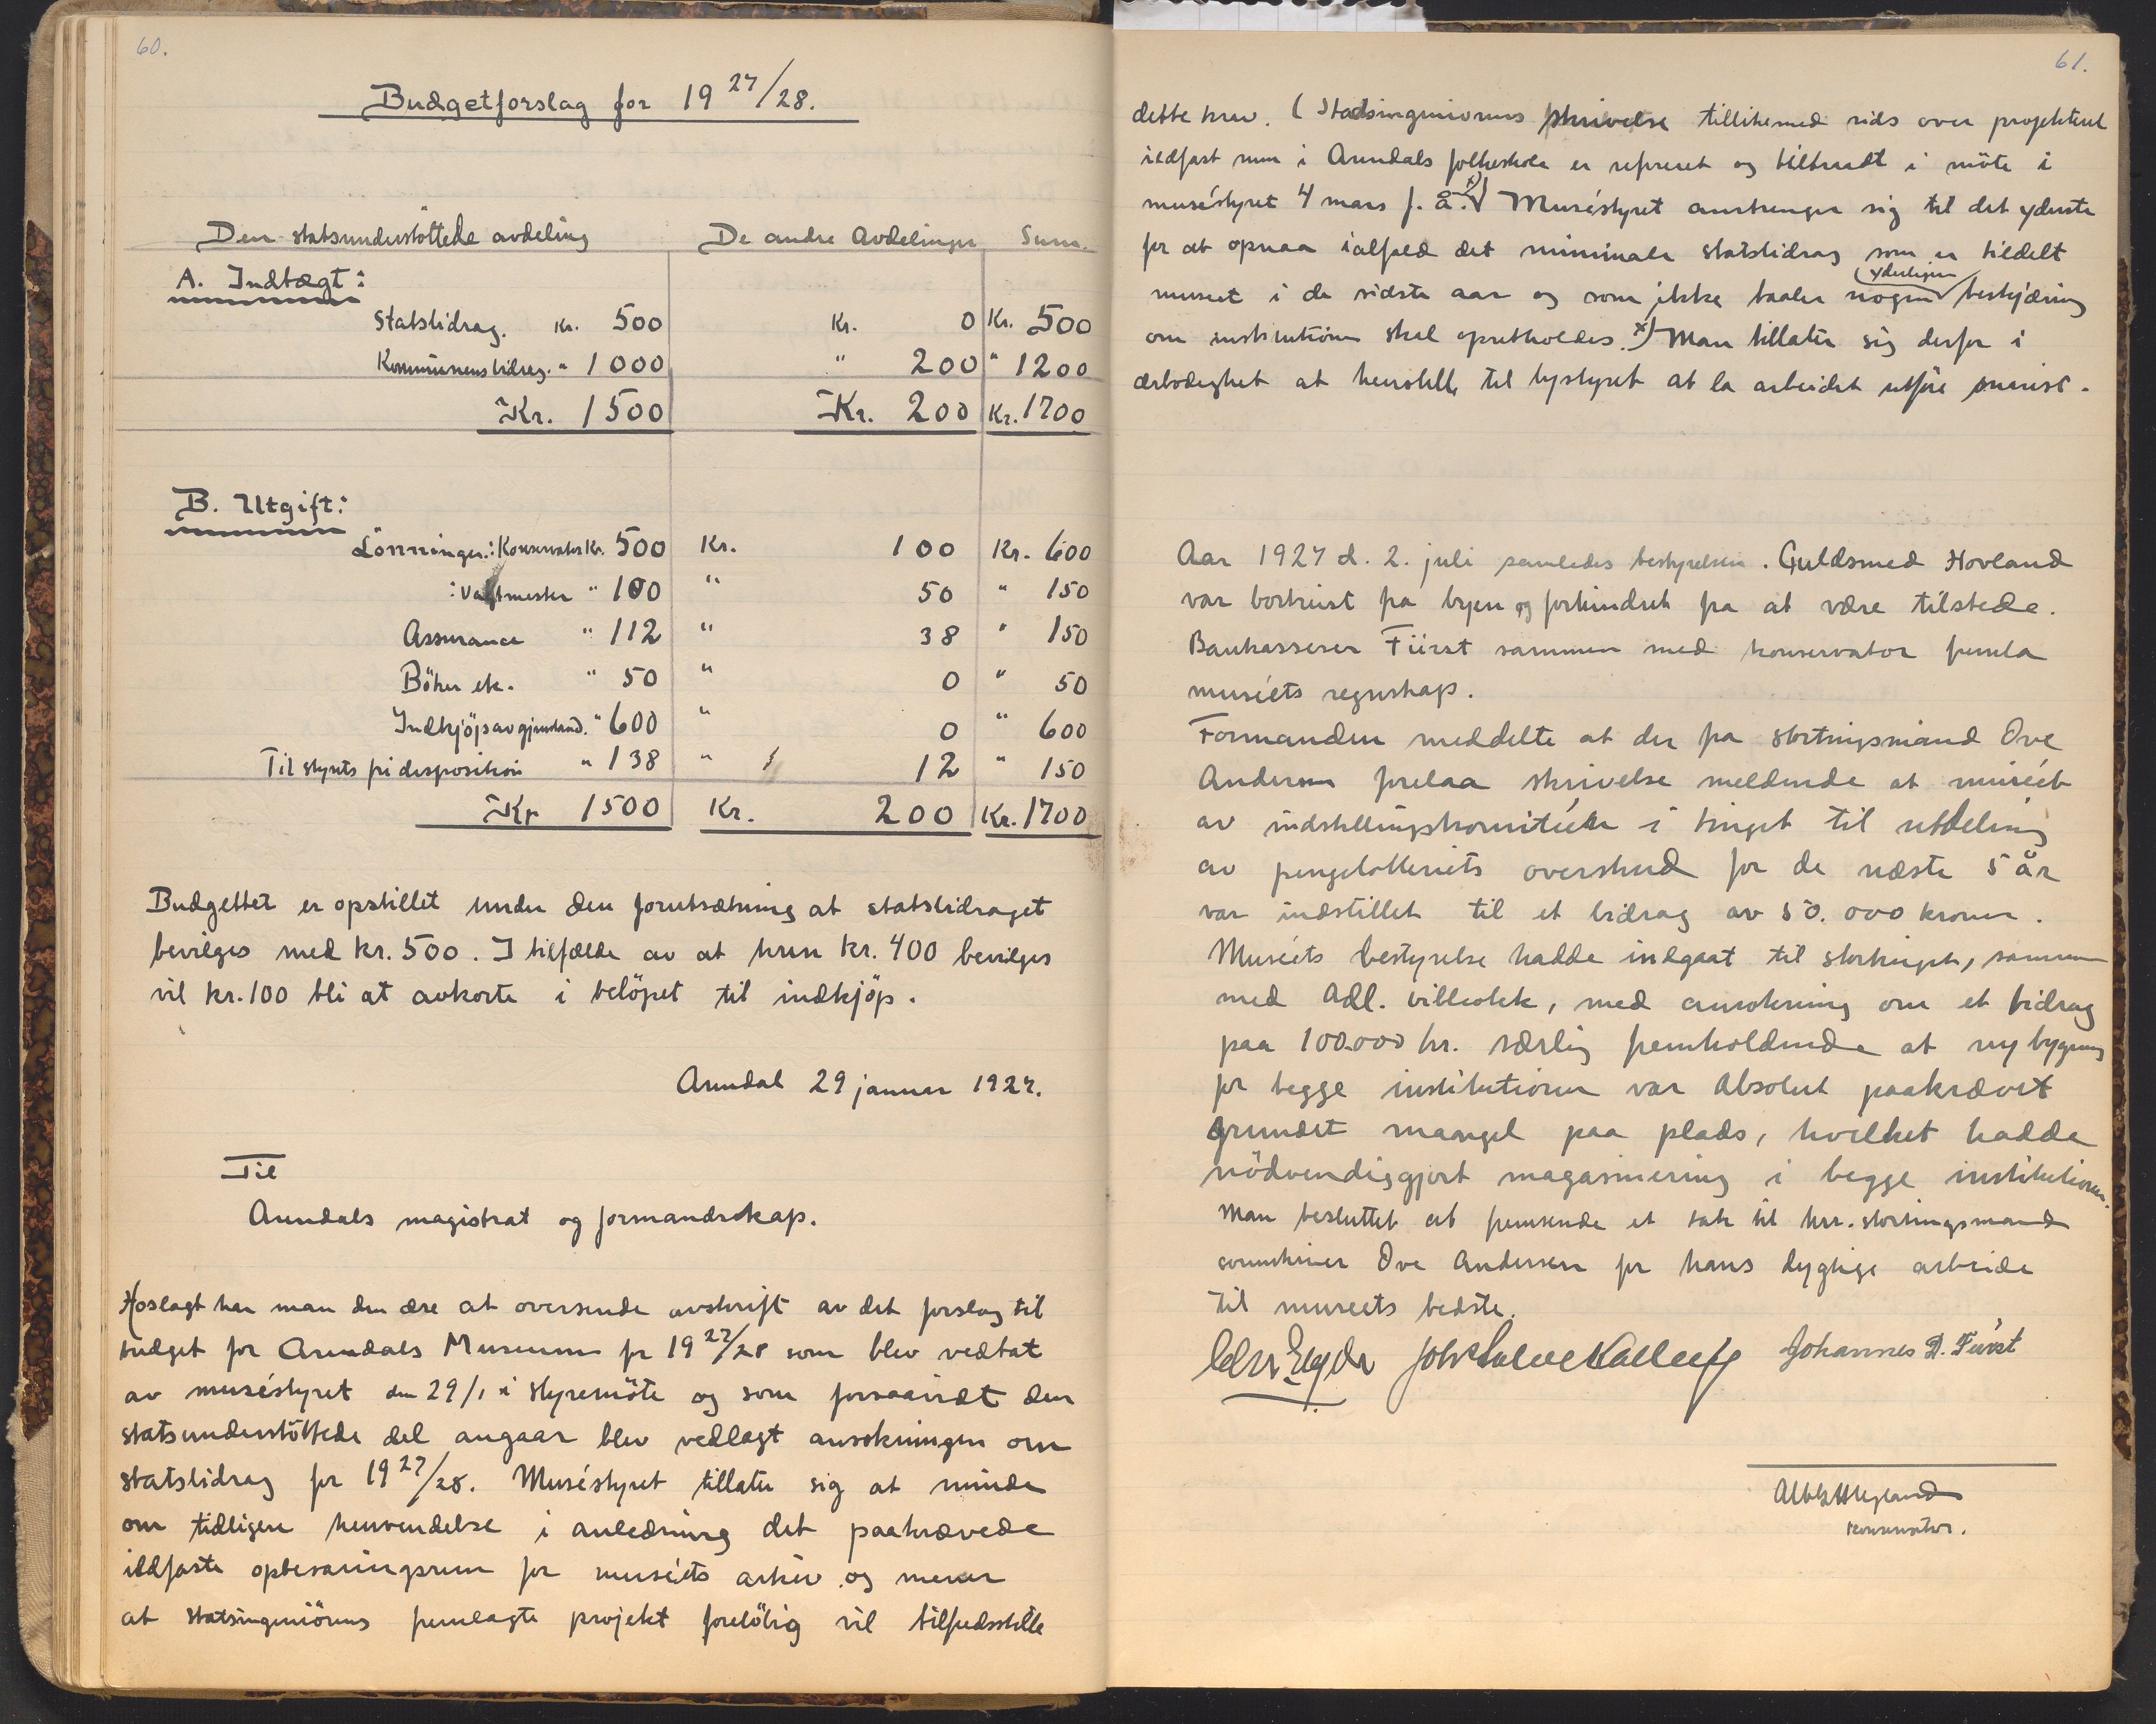 60.
Budgetforslag for 19 27/28.
Den statsunderstöttede avdeling De andre Avdelinger Sum.
A. Indtægt:
Statsbidrag. Kr. 500 Kr. 0 Kr. 500
Kommunens bidrag. " 1000 " 200 " 1200
Kr. 1500 Kr. 200 Kr. 1700
B. Utgift:
Lönninger: Konservator Kr. 500 Kr. 100 Kr. 600
: Vaktmester " 100 " 50 " 150
Assurance " 112 " 38 " 150
Böker etc. " 50 " 0 " 50
Indkjöp av gjenstand. " 600 " 0 " 600
Til styrets fri disposition " 138 " 12 " 150
Kr 1500 Kr. 200 Kr. 1700
Budgettet er opstillet under den forutsætning at statsbidraget
bevilges med kr. 500. I tilfælde av at kun kr. 400 bevilges
vil kr. 100 bli at avkorte i belöpet til indkjöp.
Arendal 29 januar 1927.
Til
Arendals magistrat og formandskap.
Hoslagt har man den ære at oversende avskrift av det forslag til
budget for Arendals Museum for 19 27/28 som blev vedtat
av muséstyret den 29/1 i styremöte og som forsaavidt den
statsunderstöttede del angaar blev vedlagt ansökningen om
statsbidrag for 19 27/28. Muséstyret tillater sig at minde
om tidligere henvendelse i anledning det paakrævede
ildfaste opbevaringsrum for muséets arkiv og mener
at statsingeniörens fremlagte projekt forelöbig vil tilfredsstille
61.
dette krav. (Stadsingeniörens skrivelse tillikemed rids over projektert
ildfast rum i Arendals folkeskole er refereret og tiltraadt i möte i
muséstyret 4 mars f. å.) x) Muséstyret anstrenger sig til det yderste
for at opnaa ialfald det minimale statsbidrag som er tildelt
museet i de sidste aar og som ikke taaler nogen (yderligere) beskjæring
om institutionen skal opretholdes. x) Man tillater sig derfor i
ærbödighet at henstille til bystyret at la arbeidet utföre snarest.
Aar 1927 d. 2. juli samledes bestyrelsen. Guldsmed Hovland
var bortreist fra byen og forhindret fra at være tilstede.
Bankasserer Fürst sammen med konservator fremla
muséets regnskap.
Formanden meddelte at der fra stortingsmand Ove
Andersen forelaa skrivelse meldende at muséet
av indstillingskomitéen i tinget til utdeling
av pengelotteriets overskud for de næste 5 år
var indstillet til et bidrag av 50.000 kroner.
Muséets bestyrelse hadde indgaat til stortinget, sammen
med Adl. bibliotek, med ansökning om et bidrag
paa 100.000 kr. særlig fremholdende at ny bygning
for begge institutioner var absolut paakrævet
grundet mangel paa plads, hvilket hadde
nödvendiggjort magasinering i begge institutioner.
Man besluttet at fremsende et takk til hrr. stortingsmand
sorenskriver Ove Andersen for hans dygtige arbeide
til museets bedste.
Johannes D. Fürst
konservator.